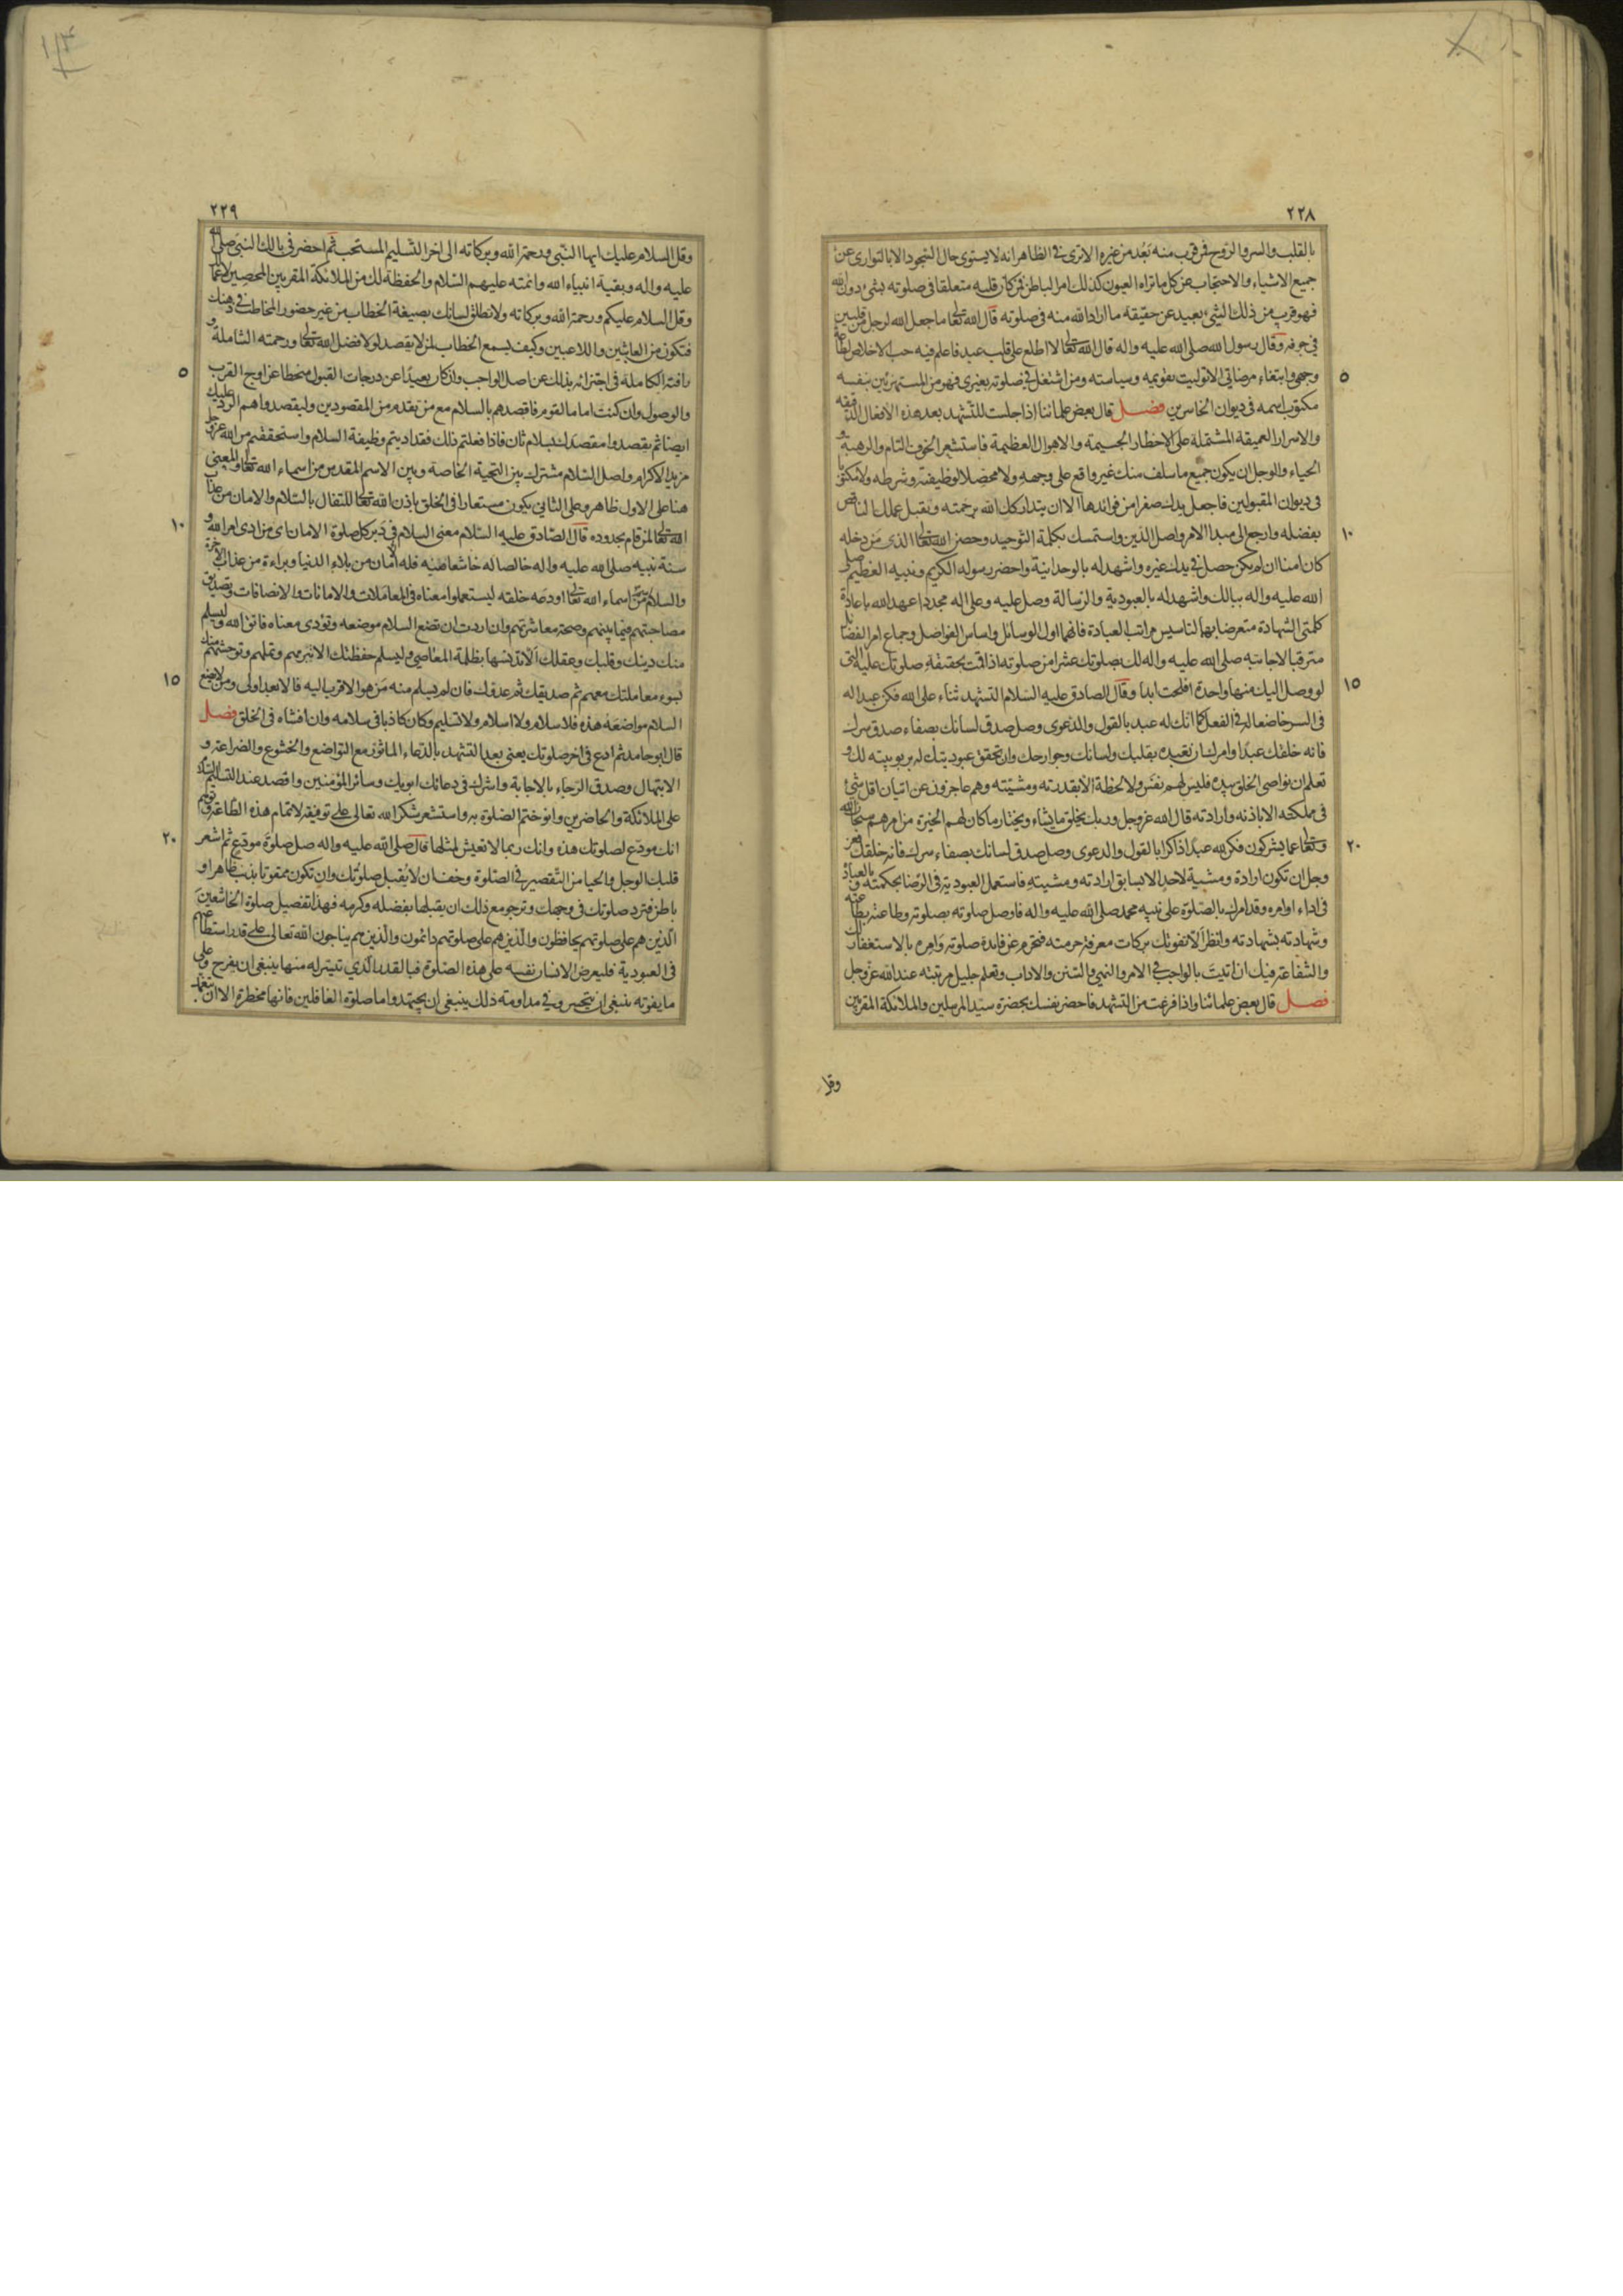 ٢٢٨
بالقلب والسر والروح فمن قرب منه بعد من غيره الا ترى فى الظاهر انه لا يستوى حال السجود الا بالتوارى عن
جميع الاشياء والاحتجاب عن كل ما تراه العيون كذلك امر الباطن فمن كان قلبه متعلقا فى صلوته بشئ دون الله
فهو قريب من ذلك الشئ بعيد عن حقيقة ما اراد الله منه فى صلوته قال الله تعالى ما جعل الله لرجل من قلبين
في جوفه وقال رسول الله صلى الله عليه واله قال الله تعالى لا اطلع على قلب عبد فاعلم فيه حب الاخلاص لطاعتى
٥
وجهى وابتغاء مرضاتي الا توليت تقويمه وسياسته ومن اشتغل في صلوته بغيرى فهو من المستهزئين بنفسه
مكتوب اسمه فى ديوان الخاسرين فصل قال بعض علمائنا اذا جلست للتشهد بعد هذه الافعال الدقيقه
والاسرار العميقة المشتملة على الاخطار الجسيمة والاهوال العظيمة فاستشعر الخوف التام والرهبة و
الحياء والوجل ان يكون جميع ما سلف منك غير واقع على وجهه ولا محصلا لوظيفته وشرطه ولا مكتوبا
فى ديوان المقبولين فاجعل يدك صفرا من فوائدها الا ان يتداركك الله برحمته ويقبل عملك الناقص
١٠
بفضله وارجع الى مبدا الامر واصل الدين واستمسك بكلمة التوحيد وحصن الله تعالى الذى من دخله
كان امنا ان لم يكن حصل في يدك غيره واشهد له بالوحدانية واحضر رسوله الكريم ونبيه العظيم صلى
الله عليه واله ببالك واشهد له بالعبودية والرسالة وصل عليه وعلى اله مجددا عهد الله باعادة
كلمتى الشهادة متعرضا بهما لتاسيس مراتب العبادة فانهما اول الوسائل واساس الفواضل وجماع امر الفضائل
مترقبا لاجابته صلى الله عليه واله لك بصلوتك عشرا من صلوته اذا قمت بحقيقة صلوتك عليه التى
١٥
لو وصل اليك منها واحدة افلحت ابدا وقال الصادق عليه السلام التشهد ثناء على الله فكن عبدا له
فى السر خاضعا له فى الفعل كما انك له عبد بالقول والدعوى وصل صدق لسانك بصفاء صدق سرك
فانه خلقك عبدا وامرك ان تعبده بقلبك ولسانك وجوارحك وان تحقق عبوديتك له بربوبيته لك و
تعلم ان نواصى الخلق بيده فليس لهم نفس ولا لحظة الا بقدرته ومشيته وهم عاجزون عن اتيان اقل شئ
فى مملكته الا باذنه وارادته قال الله عز وجل وربك يخلق ما يشاء ويختار ما كان لهم الخيرة من امرهم سبحان الله
٢٠
وتعالى عما يشركون فكن لله عبدا ذاكرا بالقول والدعوى وصل صدق لسانك بصفاء سرك فانه خلقك فعز
وجل ان تكون ارادة ومشية لاحد الا بسابق ارادته ومشيته فاستعمل العبودية فى الرضا بحكمته وبالعبادة
فى اداء اوامره وقد امرك بالصلوة على نبيه محمد صلى الله عليه واله فاوصل صلوته بصلوته وطاعته بطاعته
وشهادته بشهادته وانظر الا تفوتك بركات معرفة حرمته فتحرم عن فايدة صلوته وامره بالاستغفار لك
والشفاعة فيك ان اتيت بالواجب فى الامر والنهي والسنن والاداب وتعلم جليل مرتبته عند الله عز وجل
فصل قال بعض علمائنا واذا فرغت من التشهد فاحضر نفسك بحضرة سيد المرسلين والملائكة المقربين
٢٢٩
وقل السلام عليك ايها النبى ورحمة الله وبركاته الى اخر التسليم المستحب ثم احضر فى بالك النبى صلى الله
عليه واله وبقية انبياء الله وائمته عليهم السلام والحفظة لك من الملائكة المقربين المحصين لاعمالك
وقل السلام عليكم ورحمة الله وبركاته ولا تطلق لسانك بصيغة الخطاب من غير حضور المخاطب في ذهنك
فتكون من العابثين واللاعبين وكيف يسمع الخطاب لمن لا يقصد لولا فضل الله تعالى ورحمته الشاملة و
٥
رافته الكاملة فى اجتزائه بذلك عن اصل الواجب وان كان بعيدا عن درجات القبول منحطا عن اوج القرب
والوصول وان كنت اماما لقوم فاقصدهم بالسلام مع من تقدم من المقصودين وليقصدوا هم الرد عليك
ايضا ثم يقصدوا مقصدك بسلام ثان فاذا فعلتم ذلك فقد اديتم وظيفة السلام واستحققتم من الله عز وجل
مزيد الاكرام واصل السلام مشترك بين التحية الخاصة وبين الاسم المقدس من اسماء الله تعالى والمعنى
هنا على الاول ظاهر وعلى الثاني يكون مستعارا فى الخلق باذن الله تعالى للتفال بالسلام والامان من عذاب
١٠
الله تعالى لمن قام بحدوده قال الصادق عليه السلام معنى السلام في دبر كل صلوة الامان اى من ادى امر الله و
سنة نبيه صلى الله عليه واله خالصا له خاشعا منيه فله الامان من بلاء الدنيا وبراءة من عذاب الاخرة
والسلام اسم من اسماء الله تعالى اودعه خلقه ليستعملوا معناه فى المعاملات والامانات والانصافات وتصديق
مصاحبتهم فيما بينهم وصحة معاشرتهم وان اردت ان تضع السلام موضعه وتؤدى معناه فاتق الله وليسلم
منك دينك وقلبك وعقلك الا تدنسها بظلمة المعاصى وليسلم حفظتك الا تبرمهم وتملهم وتوحشهم منك
١٥
بسوء معاملتك معهم ثم صديقك ثم عدوك فان لم يسلم منه من هو الاقرب اليه فالابعد اولى ومن لا يضع
السلام مواضعه هذه فلا سلام ولا اسلام ولا تسليم وكان كاذبا فى سلامه وان افشاه فى الخلق فصل
قال ابو حامد ثم ادع فى اخر صلوتك يعنى بعد التشهد بالدعاء الماثور مع التواضع والخشوع والضراعة و
الابتهال وصدق الرجاء بالاجابة واشرك فى دعائك ابويك وسائر المؤمنين واقصد عند التسليم السلام
على الملائكة والحاضرين وانو ختم الصلوة به واستشعر شكر الله تعالى على توفيقه لاتمام هذه الطاعة وتوهم
٢٠
انك مودع لصلوتك هذه وانك ربما لا تعيش لمثلها قال صلى الله عليه واله صل صلوة مودع ثم اشعر
قلبك الوجل والحيا من التقصير فى الصلوة وخف ان لا تقبل صلوتك وان تكون ممقوتا بذنب ظاهر او
باطن فترد صلوتك فى وجهك وترجو مع ذلك ان يقبلها بفضله وكرمه فهذا تفصيل صلوة الخاشعين
الذين هم على صلوتهم يحافظون والذين هم على صلوتهم دائمون والذين هم يناجون الله تعالى على قدر استطاعتهم
فى العبودية فليعرض الانسان نفسه على هذه الصلوة فبالقدر الذي تيسر له منها ينبغى ان يفرح وعلى
ما يفوته ينبغى ان يتحسر وفي مداومة ذلك ينبغى ان يجتهد واما صلوة الغافلين فانها مخطرة الا ان يتغمد